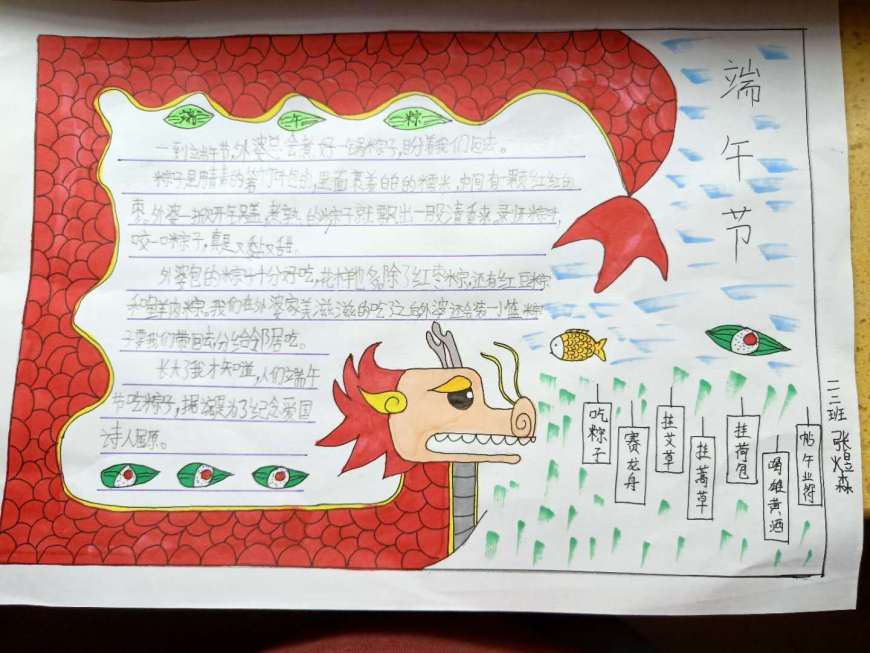 端午节
端 午 粽
一到端午节,外婆总会煮好一锅粽子,盼着我们回去。
粽子是用青青的箬竹叶包的,里面裹着白白的糯米,中间有一颗红红的
枣。外婆一掀开锅盖,煮熟的粽子就飘出一股清香来。剥开粽叶,
咬一口粽子,真是又黏又甜。
外婆包的粽子十分好吃,花样也多,除了红枣粽,还有红豆粽
和鲜肉粽。我们在外婆家美滋滋的吃了之后,外婆还会装一小篮粽
子要我们带回去,分给邻居吃。
长大了我才知道,人们端午
节吃粽子,据说是为了纪念爱国
诗人屈原。
吃粽子
赛龙舟
挂艾草
挂菖草
挂荷包
喝雄黄酒
帖午业符
一三班 张煜森